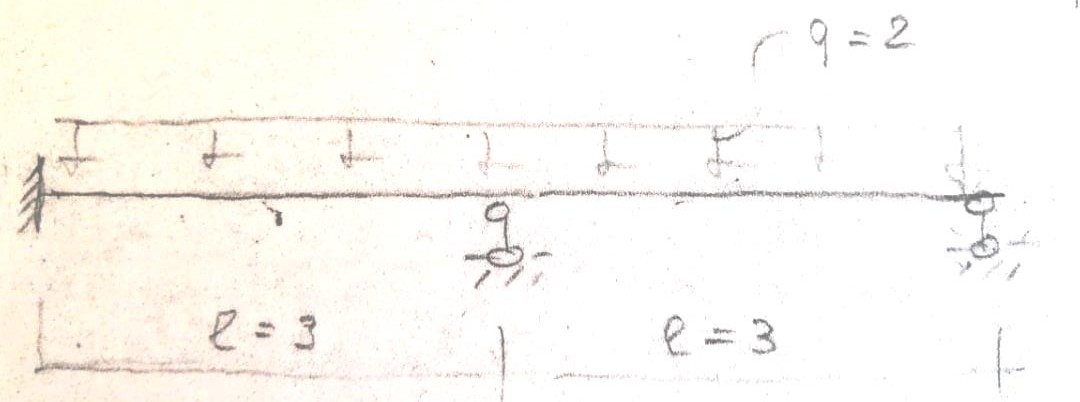 q = 2
l = 3
l = 3